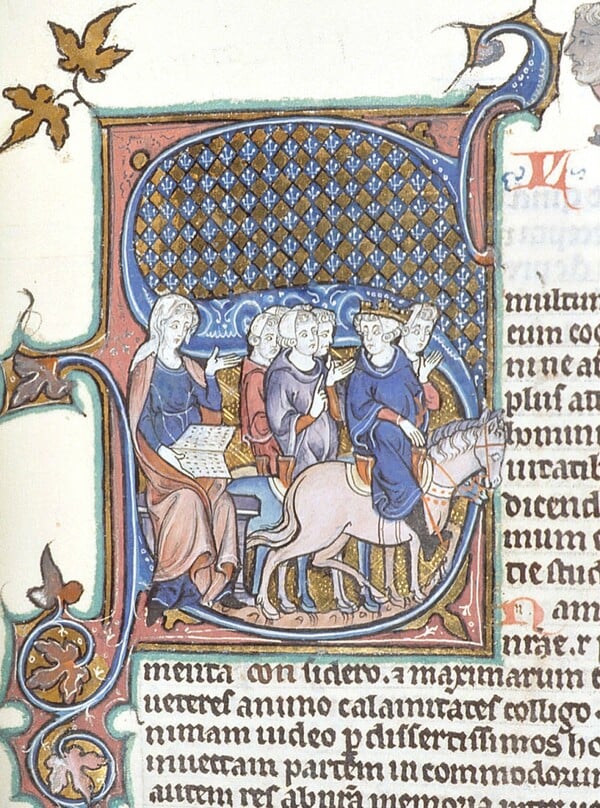 multum
cum co
ni ne at
plus att
homini
uitatib
dicend
mum e
tie stud
nam
nr̄ae. r
menta con sidero. ⁊ maximarum
ueteres animo calamitates colligo
nimam uideo ꝑ dissertissimos ho
inuectam partem in commodorum
autem res ab nr̄a memoria